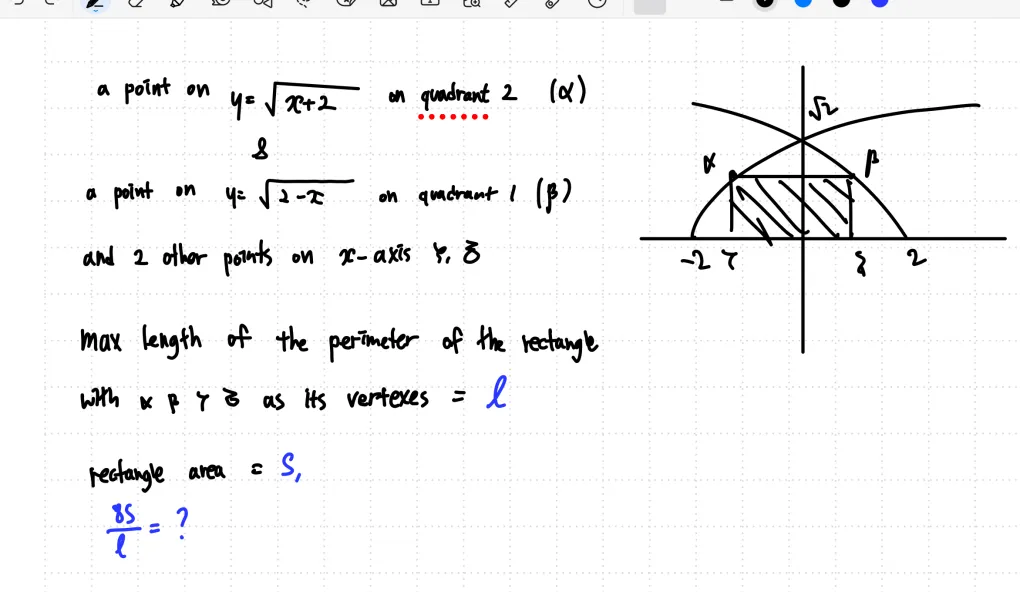 a point on y = √x+2 on quadrant 2 (α)
&
a point on y = √2-x on quadrant 1 (β)
and 2 other points on x-axis γ, δ
max length of the perimeter of the rectangle
with α β γ δ as its vertexes = l
rectangle area = S,
8S/l = ?
√2
α β
-2 γ δ 2